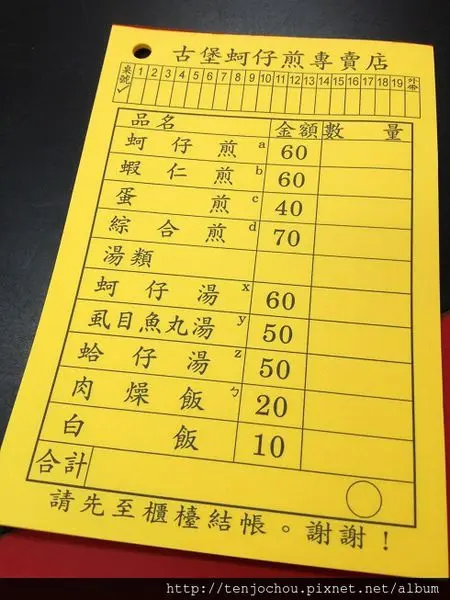 古堡蚵仔煎專賣店
桌號 1 2 3 4 5 6 7 8 9 10 11 12 13 14 15 16 17 18 19 外帶
✓
品名 金額 數量
蚵仔煎 a 60
蝦仁煎 b 60
蛋煎 c 40
綜合煎 d 70
湯類
蚵仔湯 x 60
虱目魚丸湯 y 50
蛤仔湯 z 50
肉燥飯 ㄅ 20
白飯 10
合計
請先至櫃檯結帳。謝謝！
http://tenjochou.pixnet.net/album